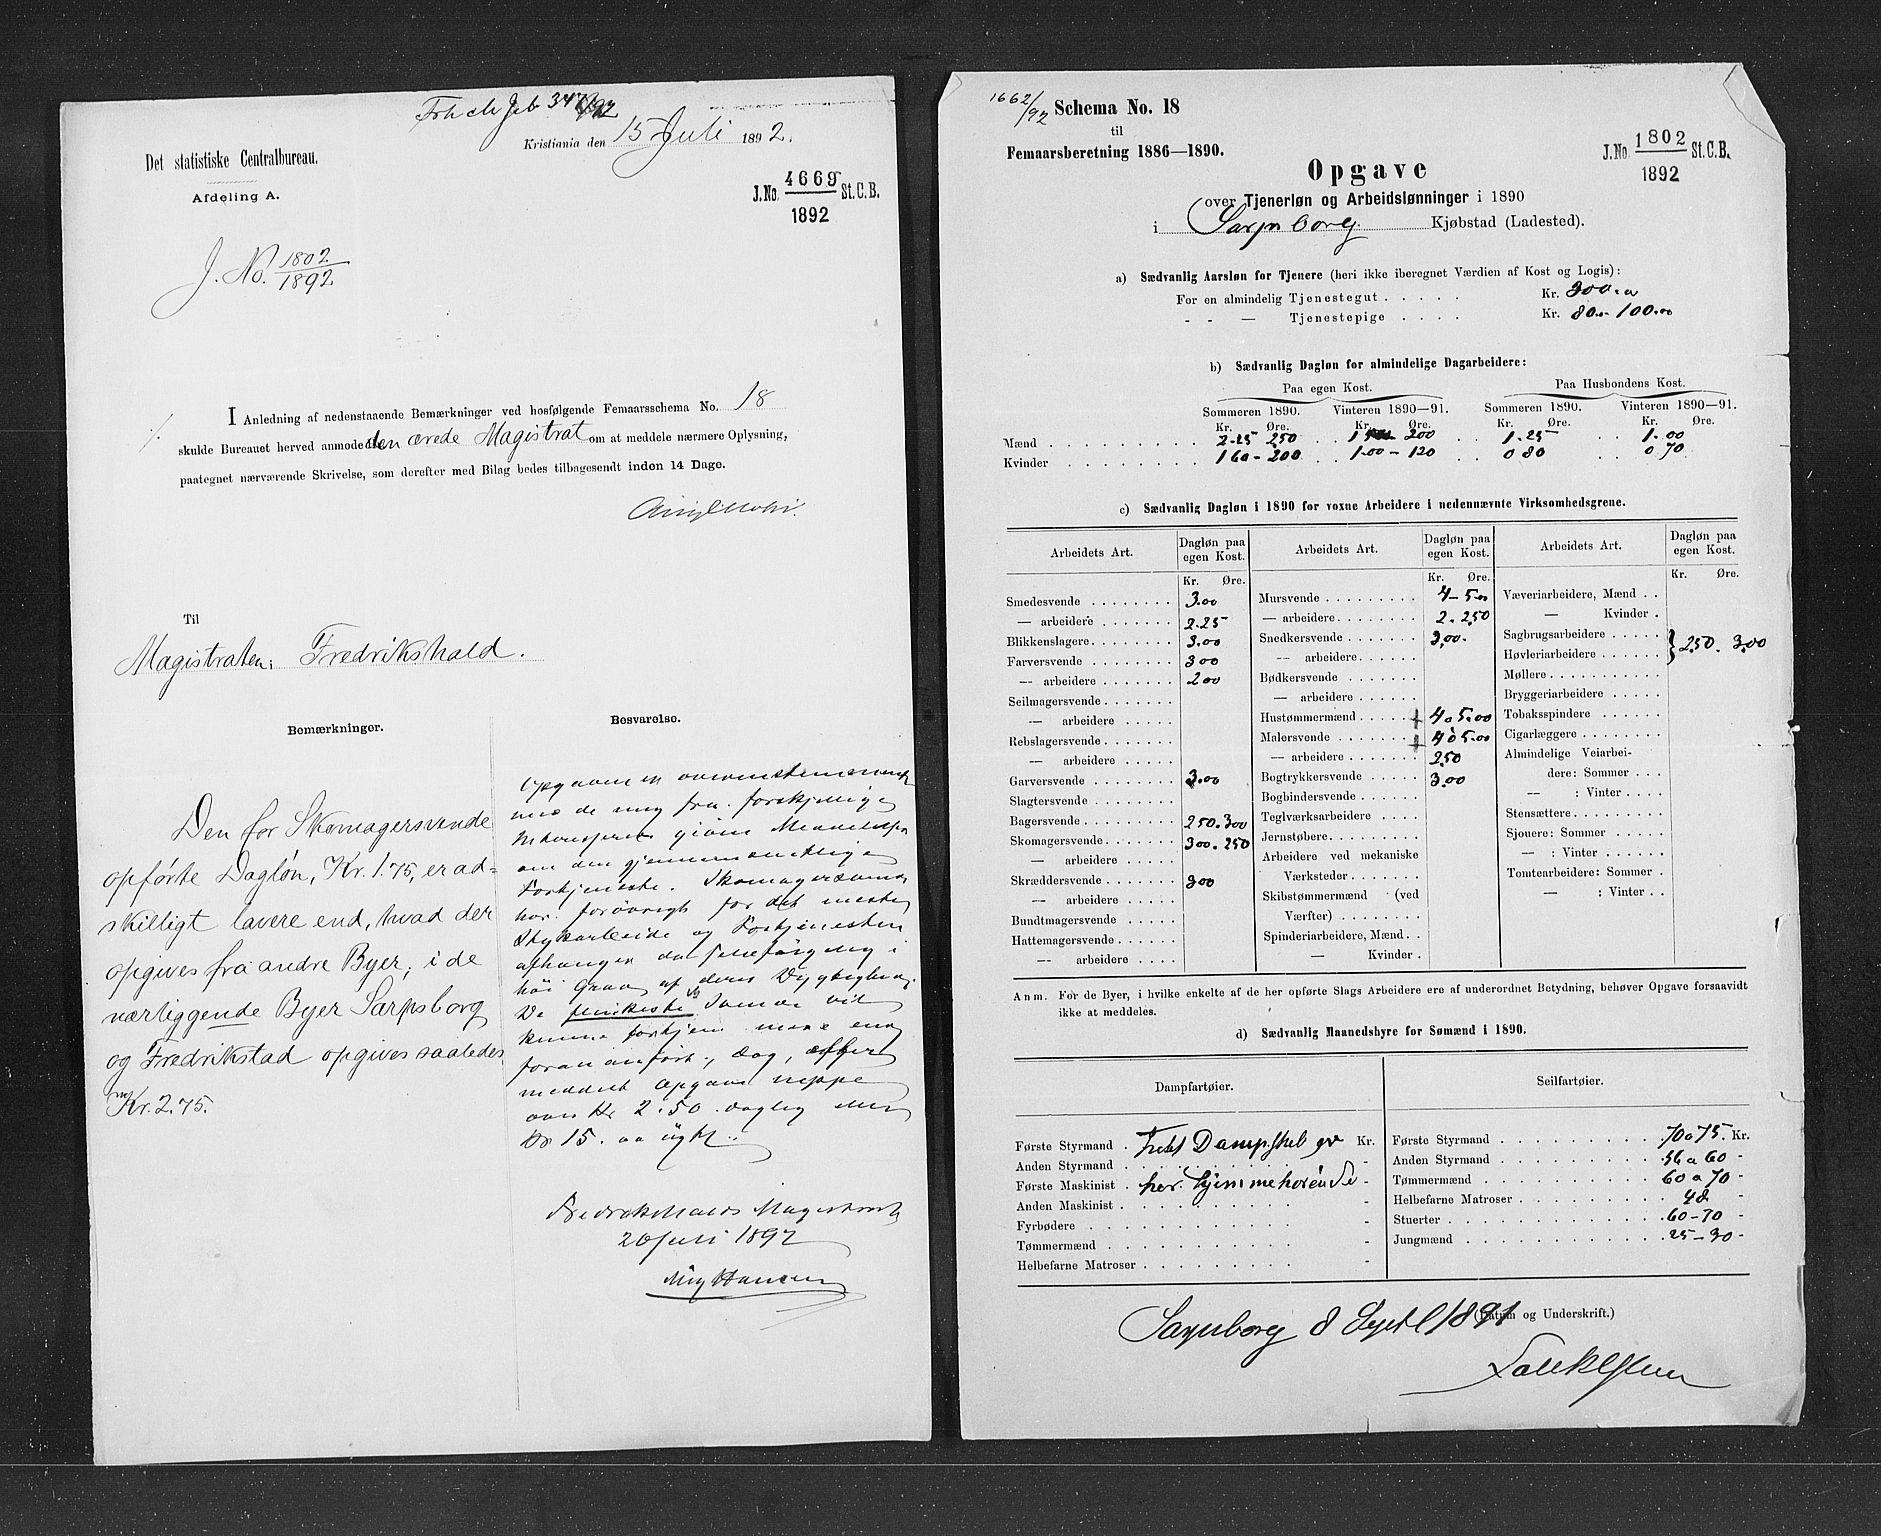 Kristiania den 15 Juli 1892.
Det statistiske Centralbureau.
Afdeling A.
J.No. 4669 St.C.B.
1892
J. No. 1802
1892
I Anledning af nedenstaaende Bemærkninger ved hosfølgende Femaarsschema No. 18
skulde Bureauet herved anmode den ærede Magistrat om at meddele nærmere Oplysning,
paategnet nærværende Skrivelse, som derefter med Bilag bedes tilbagesendt inden 14 Dage.
Til
Magistraten i Fredrikshald.
Bemærkninger.
Den for Skomagersvende
opførte Dagløn, Kr. 1.75, er ad-
skilligt lavere end, hvad der
opgives fra andre Byer; i de
nærliggende Byer Sarpsborg
og Fredrikstad opgives saaledes
Kr. 2.75.
Besvarelse.
Opgaven er overensstemmende
med de mig fra forskjellige
givne
om den gjennemsnitlige
Fortjeneste. Skomagersvende
har forøvrigt for det meste
Stykarbeide og Fortjenesten
afhænger da selvfølgelig i
høi Grad af deres Dygtighed.
De flinkeste Svende vil
kunne fortjene mere end
foran anført, dog, efter
meddelt Opgave neppe
over Kr 2.50 daglig eller
Kr 15.00 ugtl.
Fredrikshalds Magistrat
20 Juli 1892
Aug Hansen
1662/92
Schema No. 18
til
Femaarsberetning 1886—1890.
J.No. 1802 St.C.B.
1892
Opgave
over Tjenerløn og Arbeidslønninger i 1890
i Sarpsborg Kjøbstad (Ladested).
a) Sædvanlig Aarsløn for Tjenere (heri ikke iberegnet Værdien af Kost og Logis):
For en almindelig Tjenestegut . . . . . Kr. 300.00
- - — Tjenestepige . . . . Kr. 80.- 100.00
b) Sædvanlig Dagløn for almindelige Dagarbeidere:
Paa egen Kost. Paa Husbondens Kost.
Sommeren 1890. Vinteren 1890—91. Sommeren 1890. Vinteren 1890—91.
Kr. Øre. Kr. Øre. Kr. Øre. Kr. Øre.
Mænd 2.25 250 200 1.25 1.00
Kvinder 160-200 1.00-120 0 80 0 70
c) Sædvanlig Dagløn i 1890 for voxne Arbeidere i nedennævnte Virksomhedsgrene.
Arbeidets Art. Dagløn paa egen Kost.
Kr. Øre.
Smedesvende 3.00
— arbeidere 2.25
Blikkenslagere 3.00
Farversvende 300
— arbeidere 200
Seilmagersvende
— arbeidere
Rebslagersvende
— arbeidere
Garversvende 3.00
Slagtersvende
Bagersvende 250.300
Skomagersvende 300.250
— arbeidere
Skræddersvende 300
— arbeidere
Bundtmagersvende
Hattemagersvende
— arbeidere
Arbeidets Art. Dagløn paa egen Kost.
Kr. Øre.
Mursvende 4-5.00
— arbeidere 2.250
Snedkersvende 3,00.
— arbeidere
Bødkersvende
— arbeidere
Hustømmermænd 4 à 5.00
Malersvende 4 à 5.00
— arbeidere 250
Bogtrykkersvende 3.00
Bogbindersvende
Teglværksarbeidere
Jernstøbere
Arbeidere ved mekaniske
Værksteder
Skibstømmermænd (ved
Værfter)
Spinderiarbeidere, Mænd
— Kvinder
Arbeidets Art. Dagløn paa egen Kost.
Kr. Øre.
Væveriarbeidere, Mænd
— Kvinder
Sagbrugsarbeidere } 2.50. 3,00
Høvleriarbeidere
Møllere
Bryggeriarbeidere
Tobaksspindere
Cigarlæggere
Almindelige Veiarbei-
dere: Sommer
— : Vinter
Stensættere
Sjouere: Sommer
— : Vinter
Tomtearbeidere: Sommer
— : Vinter
Anm. For de Byer, i hvilke enkelte af de her opførte Slags Arbeidere ere af underordnet Betydning, behøver Opgave forsaavidt
ikke at meddeles.
d) Sædvanlig Maanedshyre for Sømænd i 1890.
Dampfartøier.
Første Styrmand . Intet Dampskib er Kr.
Anden Styrmand
Første Maskinist . her hjemmehørende -
Anden Maskinist -
Fyrbødere -
Tømmermænd -
Helbefarne Matroser -
Seilfartøier.
Første Styrmand 70 a 75. Kr.
Anden Styrmand 56 a 60 -
Tømmermænd 60 a 70 -
Helbefarne Matroser 48 -
Stuerter 60-70 -
Jungmænd 25-30 -
Sarpsborg 8 Septbr 1891
(Datum og Underskrift.)